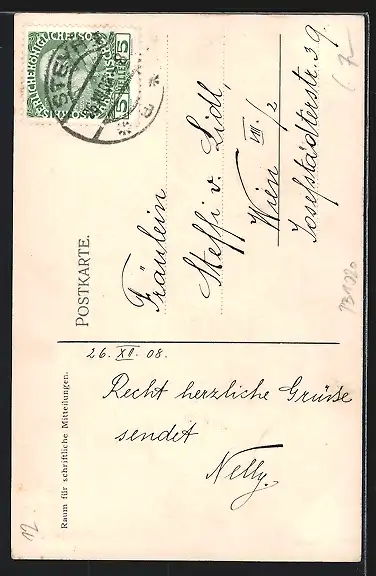 POSTKARTE.
Fräulein
Steffi v. Lidl,
Wien VIII./2
Josefstädterstr. 39.
Raum für schriftliche Mitteilungen.
26. XII. 08.
Recht herzliche Grüsse
sendet
Nelly.
12
STEYR
5 5